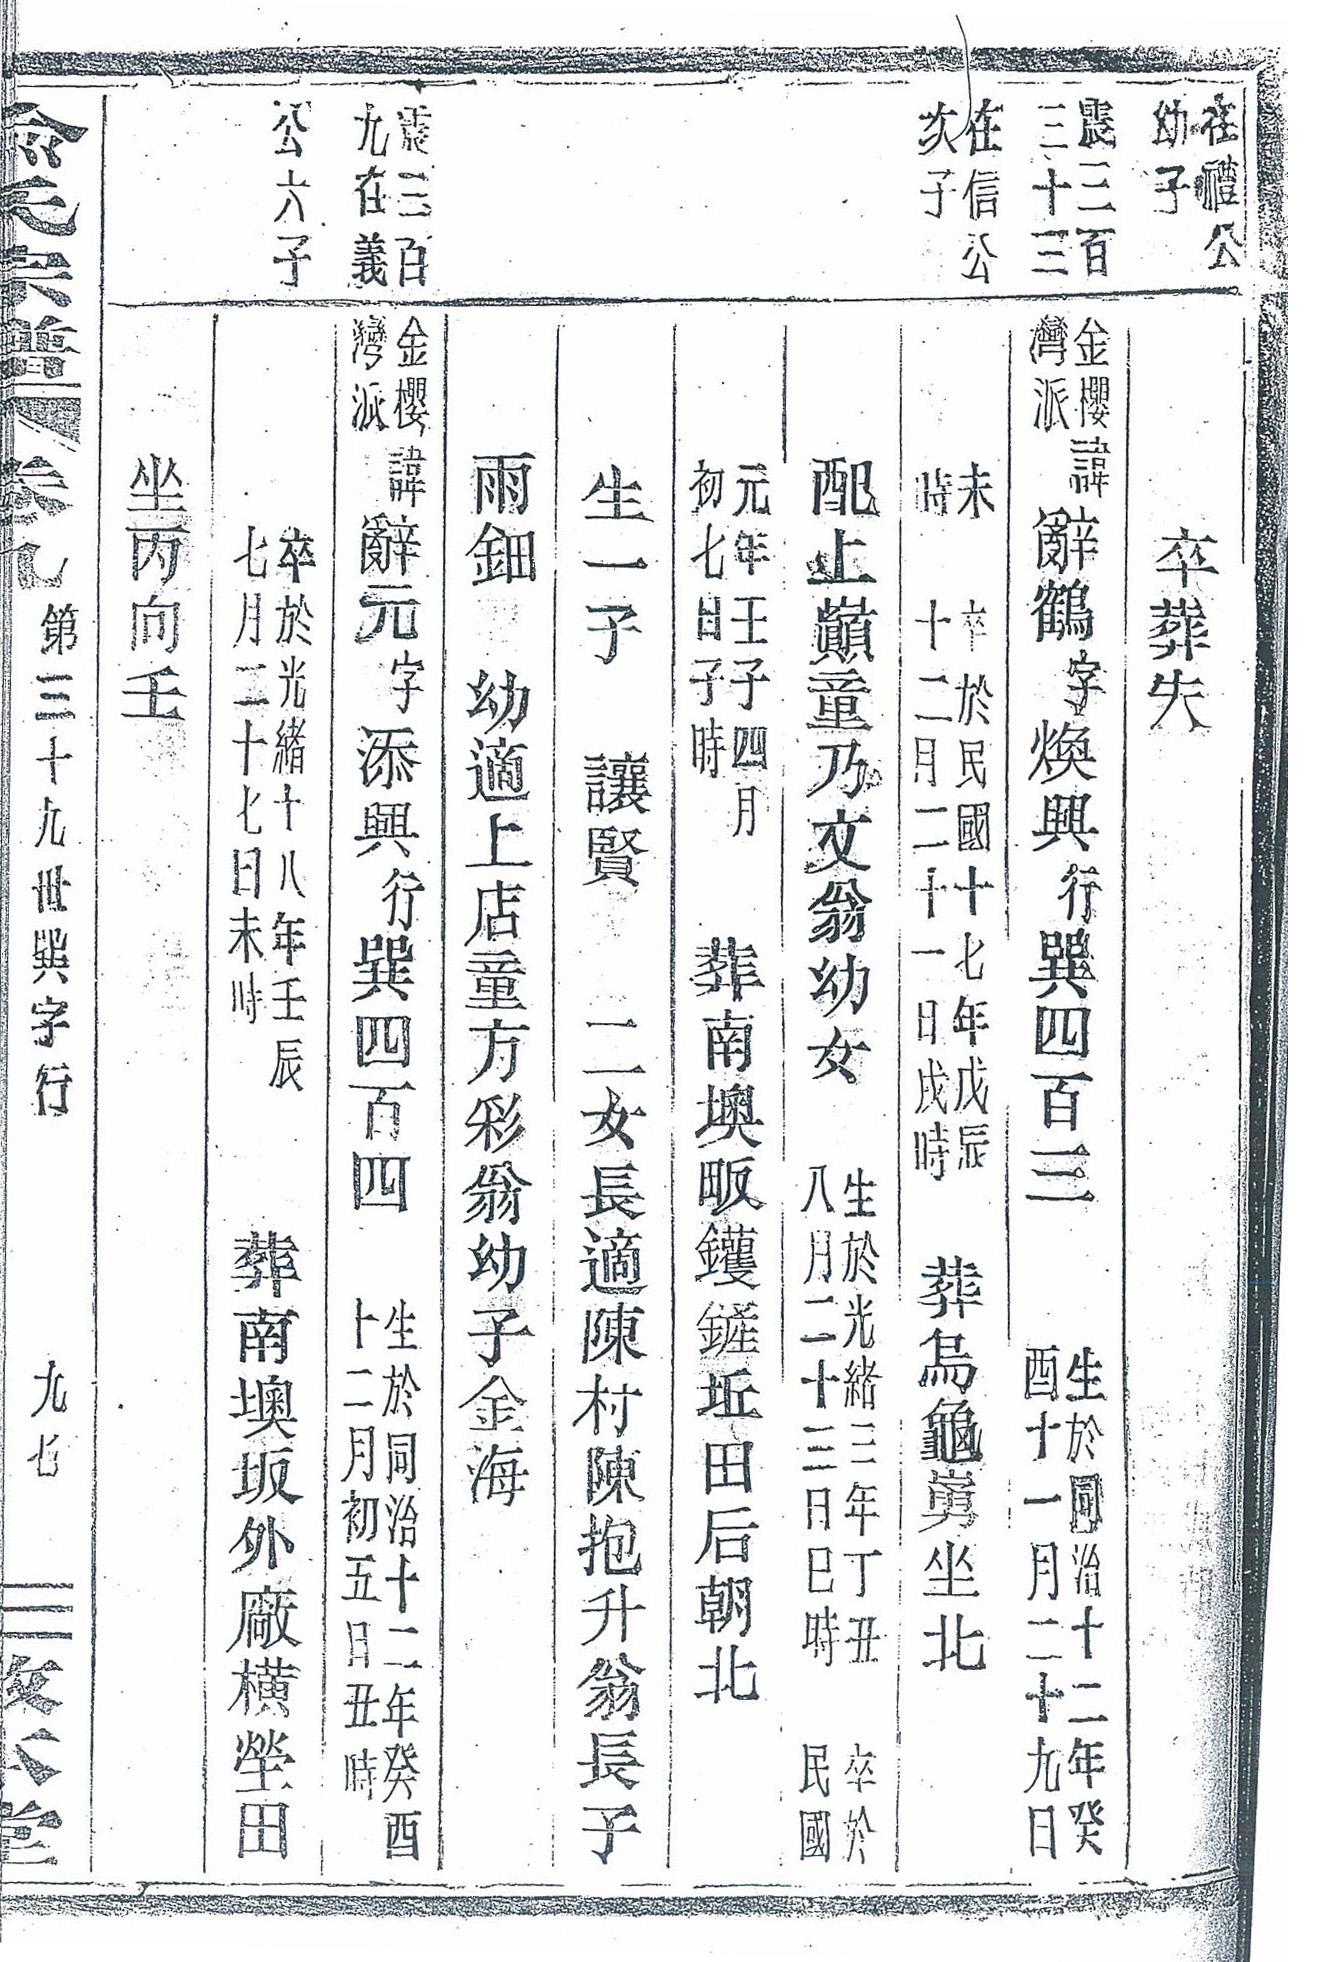 在禮公
幼子
卒葬失
震三百
三十三
金櫻
灣派
諱辭鶴字煥興行巽四百三
生於同治十二年癸
酉十一月二十九日
在信公
次子
未
時
卒於民國十七年戊辰
十二月二十一日戌時
葬烏龜嵏坐北
配上巔童乃文翁幼女
生於光緒三年丁丑
八月二十三日巳時
卒於
民國
元年壬子四月
初七日子時
葬南墺畈鑊鏟坵田后朝北
生一子 讓賢 二女長適陳村陳抱升翁長子
雨鈿 幼適上店童方彩翁幼子金海
震三百
九在義
公六子
金櫻
灣派
諱辭元字添興行巽四百四
生於同治十二年癸酉
十二月初五日丑時
卒於光緒十八年壬辰
七月二十七日未時
葬南墺坂外廠橫塋田
坐丙向壬
俞氏宗譜 卷九 第三十九世巽字行 九七 敦本堂